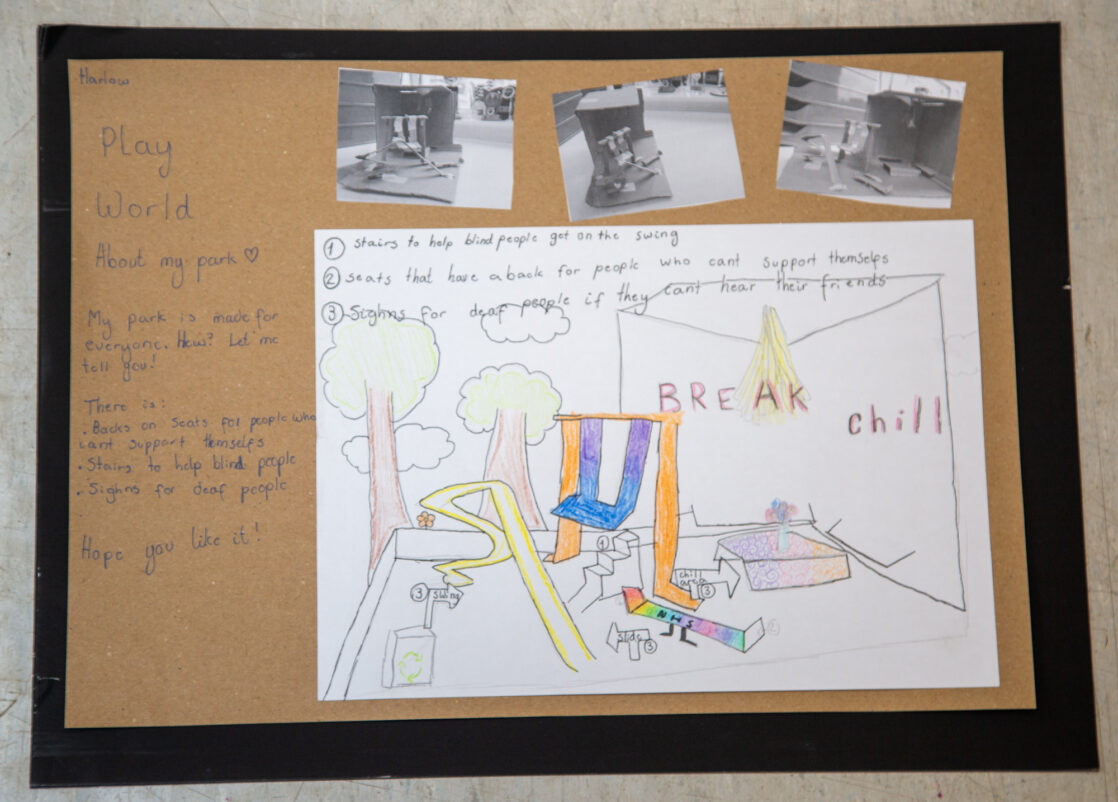 Harlow
Play
World
About my park ♡
My park is made for
everyone. How? Let me
tell you!
There is:
• Backs on seats for people who
cant support themselfs
• Stairs to help blind people
• Sighns for deaf people
Hope you like it!
① Stairs to help blind people get on the swing
② Seats that have a back for people who cant support themselfs
③ Sighns for deaf people if they cant hear their friends
BREAK
chill
①
chill
area
③
③ Swing
NHS
Slide
③
②